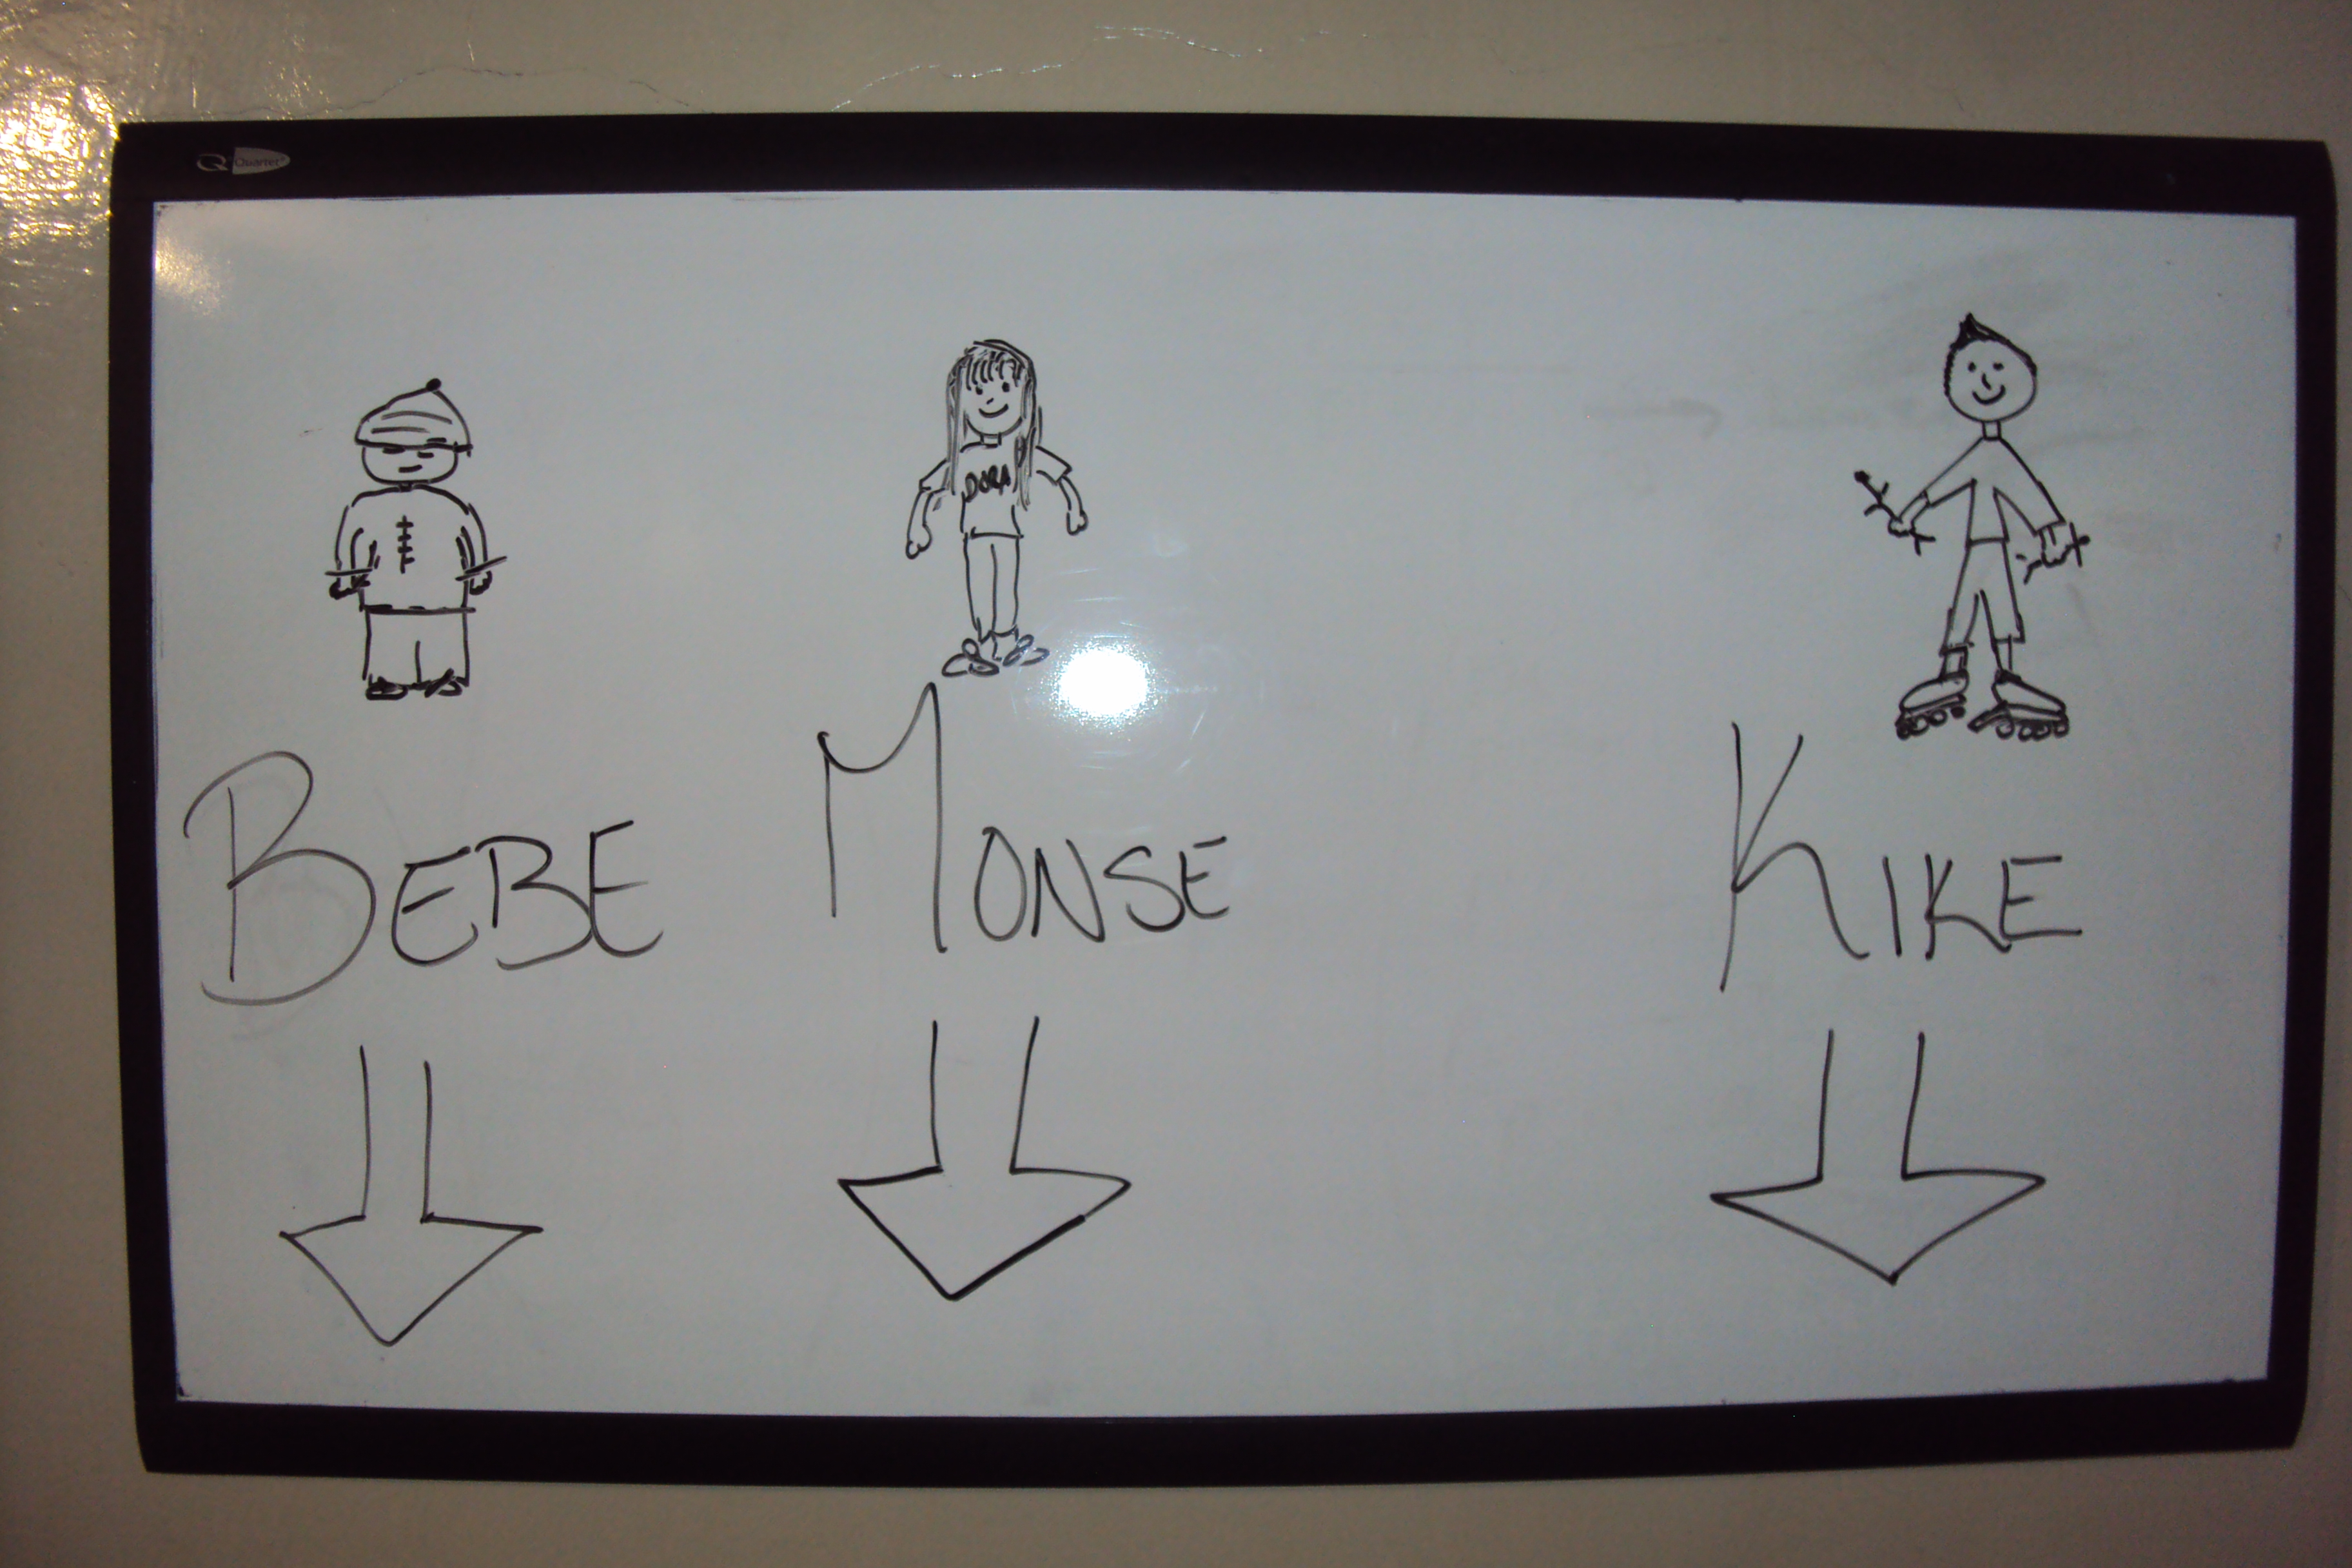 Quartet
DORA
BEBE MONSE KIKE